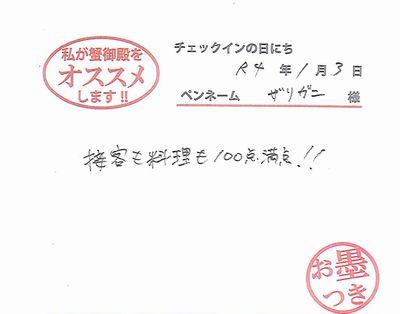 私が蟹御殿を
オススメ
します!!
チェックインの日にち
R4 年 1 月 3 日
ペンネーム ザリガニ 様
接客も料理も100点満点!!
お墨
つき